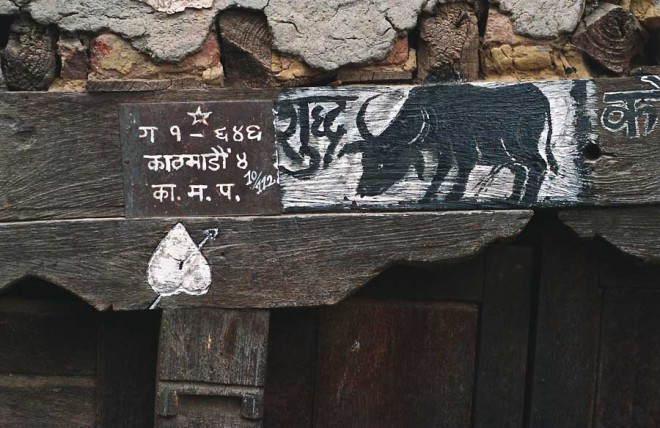 ग १ - ६४६
काठमाडौं ४
का. म. प.
10/112
शुद्ध